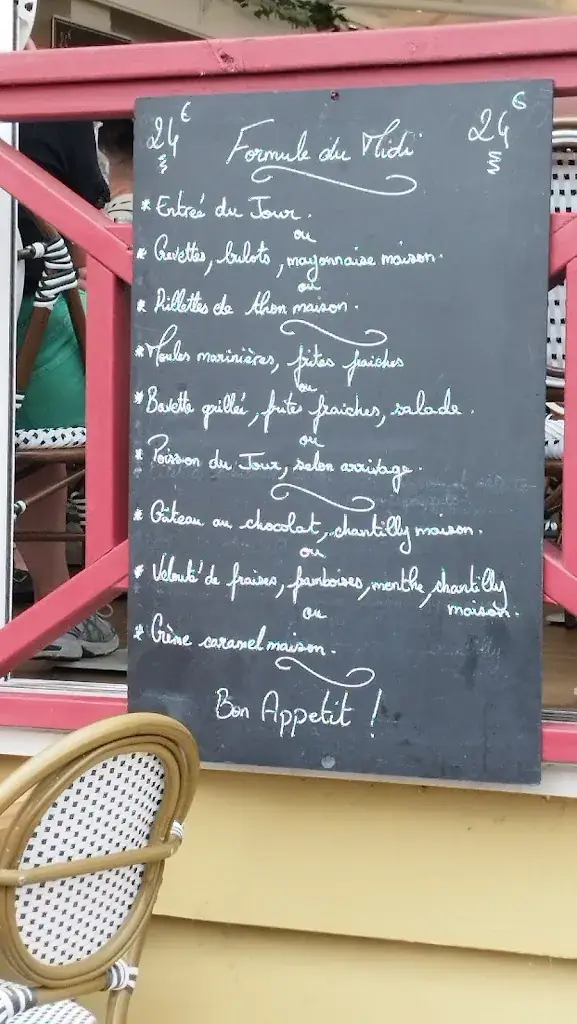 24€ Formule du Midi 24€
* Entrée du Jour.
ou
* Crevettes, bulots, mayonnaise maison.
ou
* Rillettes de thon maison.
* Moules marinières, frites fraiches
ou
* Bavette grillée, frites fraiches, salade.
ou
* Poisson du Jour, selon arrivage.
* Gâteau au chocolat, chantilly maison.
ou
* Velouté de fraises, framboises, menthe, chantilly
maison.
ou
* Crème caramel maison.
Bon Appetit !